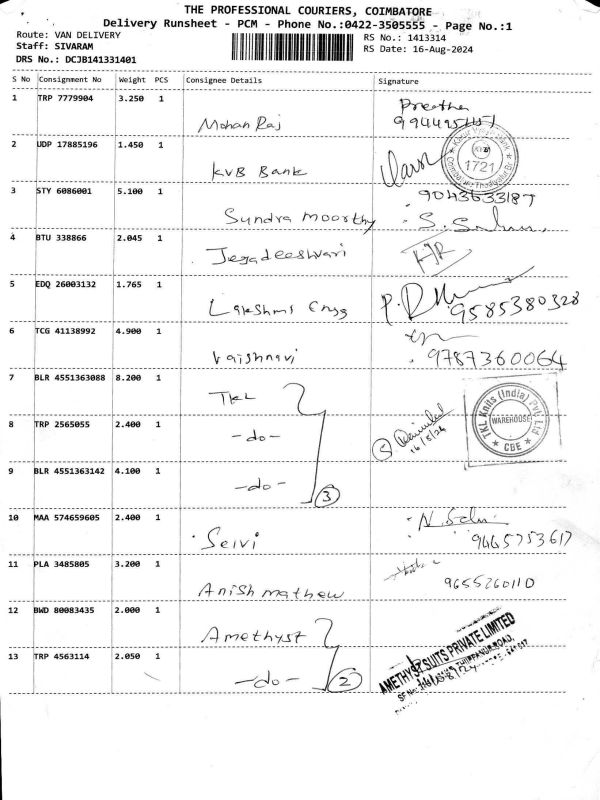 THE PROFESSIONAL COURIERS, COIMBATORE
Delivery Runsheet - PCM - Phone No.:0422-3505555 - Page No.:1
Route: VAN DELIVERY RS No.: 1413314
Staff: SIVARAM RS Date: 16-Aug-2024
DRS No.: DCJB141331401
S No Consignment No Weight PCS Consignee Details Signature
1 TRP 7779904 3.250 1 Mohan Raj Preetha
2 UDP 17885196 1.450 1 KVB Bank 1721
3 STY 6086001 5.100 1 Sundra Moorthy
4 BTU 338866 2.045 1 Jegadeeshwari
5 EDQ 26003132 1.765 1 Lakshmi Engg 9585380328
6 TCG 41138992 4.900 1 Vaishnavi 9787360064
7 BLR 4551363088 8.200 1 TKL TKL Knits (India) Pvt. Ltd WAREHOUSE CBE
8 TRP 2565055 2.400 1 -do- 5
9 BLR 4551363142 4.100 1 -do- 3
10 MAA 574659605 2.400 1 Selvi 9465753617
11 PLA 3485805 3.200 1 Anish mathew 9655260110
12 BWD 80083435 2.000 1 Amethyst AMETHYST SUITS PRIVATE LIMITED
13 TRP 4563114 2.050 1 -do- 2